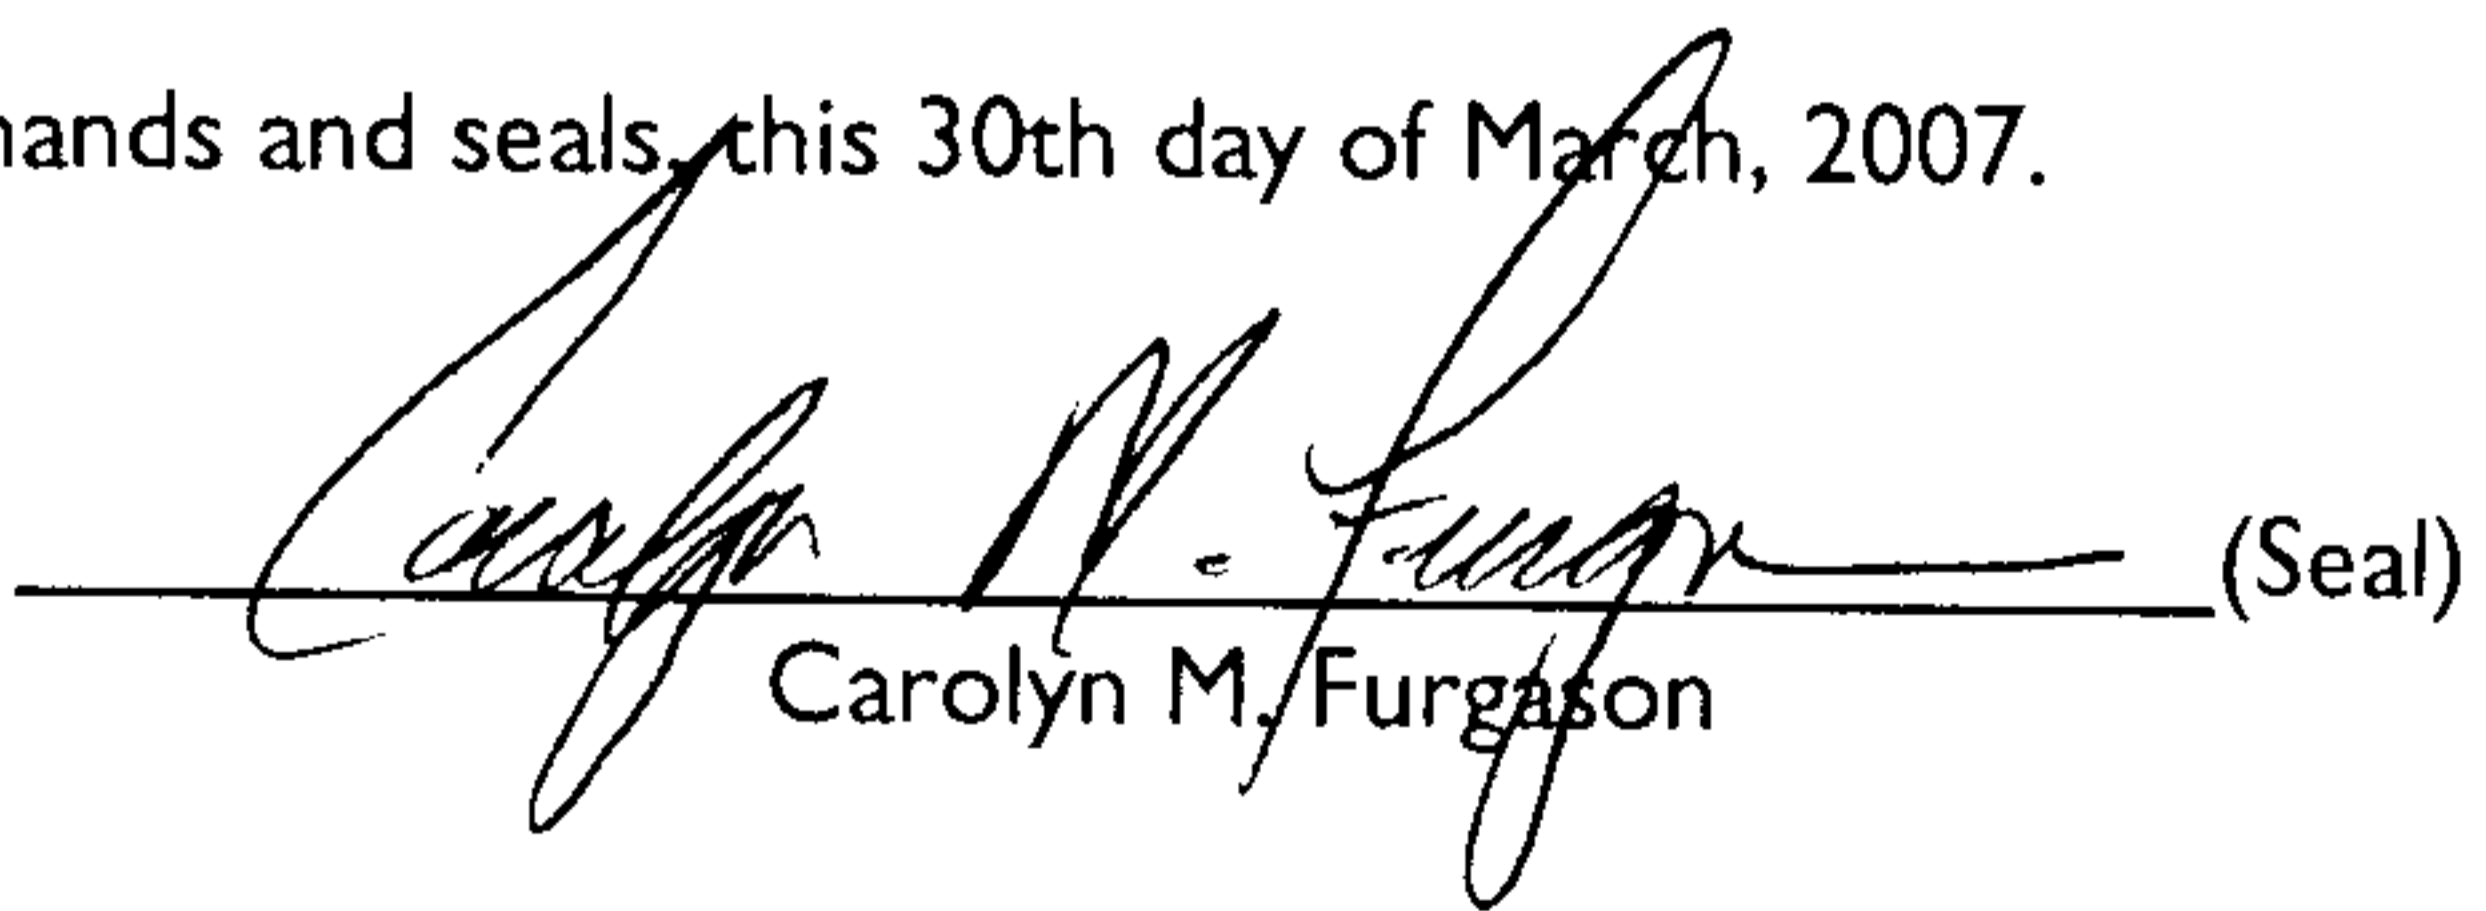 hands and seals, this 30th day of March, 2007.
Carolyn M. Furgason (Seal)
Carolyn M. Furgason